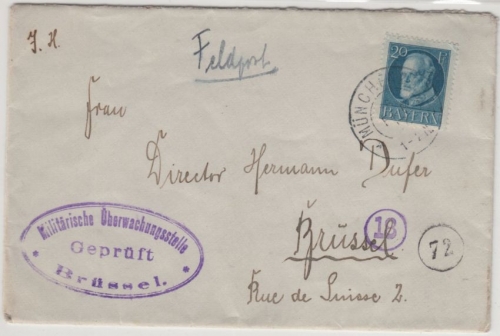 J. H.
Feldpost
20 P
BAYERN
MÜNCH
1-2
Frau
Director Hermann Dufer
Brüssel
Rue de Suisse 2.
Militärische Überwachungsstelle
Geprüft
Brüssel.
18
72